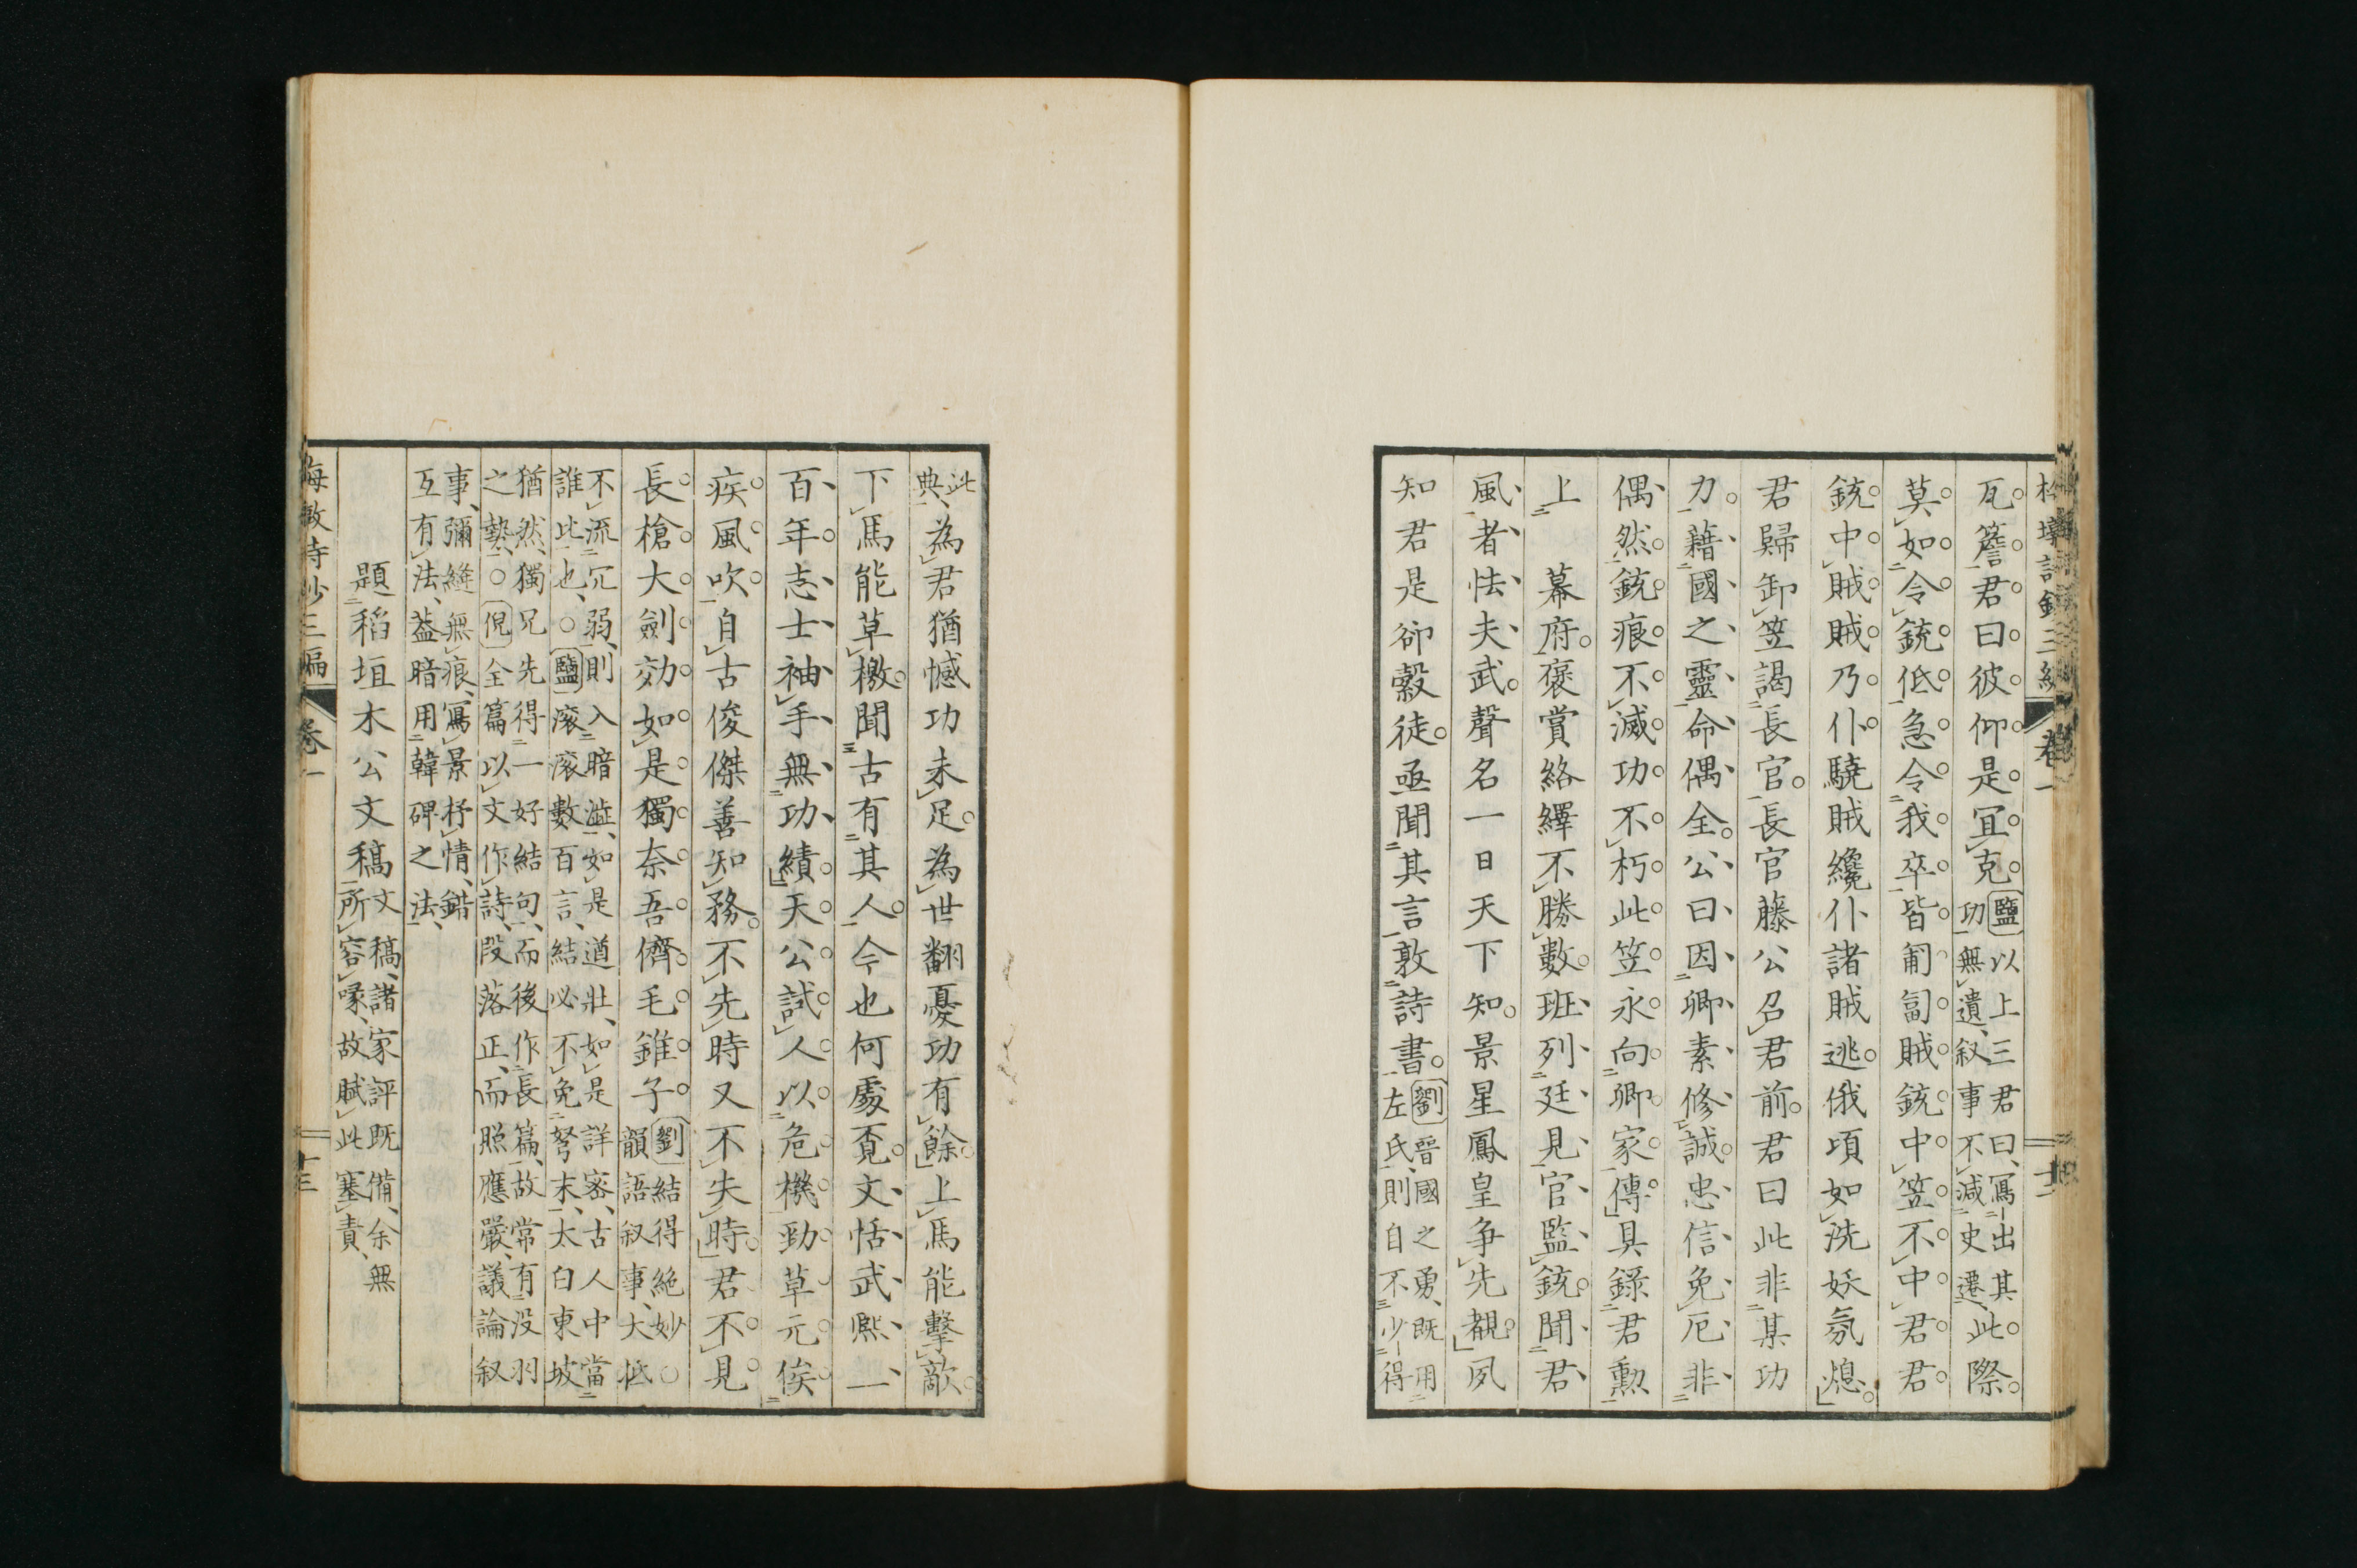 瓦簷君曰彼仰是宜克鹽以上三君曰寫出其此際
功無遺叙事不減史遷
莫如令銃低急令我卒皆匍匐賊銃中笠不中君君
銃中賊賊乃仆驍賊纔仆諸賊逃俄頃如洗妖氛熄
君歸卸笠謁長官長官藤公召君前君曰此非某功
力藉國之靈命偶全公曰因卿素修誠忠信免厄非
偶然銃痕不滅功不朽此笠永向卿家傳具錄君勳
上幕府褒賞絡繹不勝數班列廷見官監銃聞君
風者怯夫武聲名一日天下知景星鳳皇争先覩夙
知君是郤縠徒亟聞其言敦詩書劉晋國之勇既用
左氏則自不少得
此典為君猶憾功未足為世翻憂功有餘上馬能擊敵
下馬能草檄聞古有其人今也何處覓文恬武熈一
百年志士袖手無功績天公試人以危機勁草元俟
疾風吹自古俊傑善知務不先時又不失時君不見
長槍大劍効如是獨奈吾儕毛錐子劉結得絶妙○
韻語叙事大低
不流冗弱則入暗澁如是遒壯如是詳密古人中當
誰此也○鹽滚滚數百言結必不免弩末太白東坡
猶然獨兄先得一好結句而後作長篇故常有没羽
之勢○倪全篇以文作詩段落正而照應嚴議論叙
事彌縫無痕寫景杼情錯
互有法葢暗用韓碑之法
題稻垣木公文稿文稿諸家評既備余無
所容喙故賦此塞責
卷一
十三